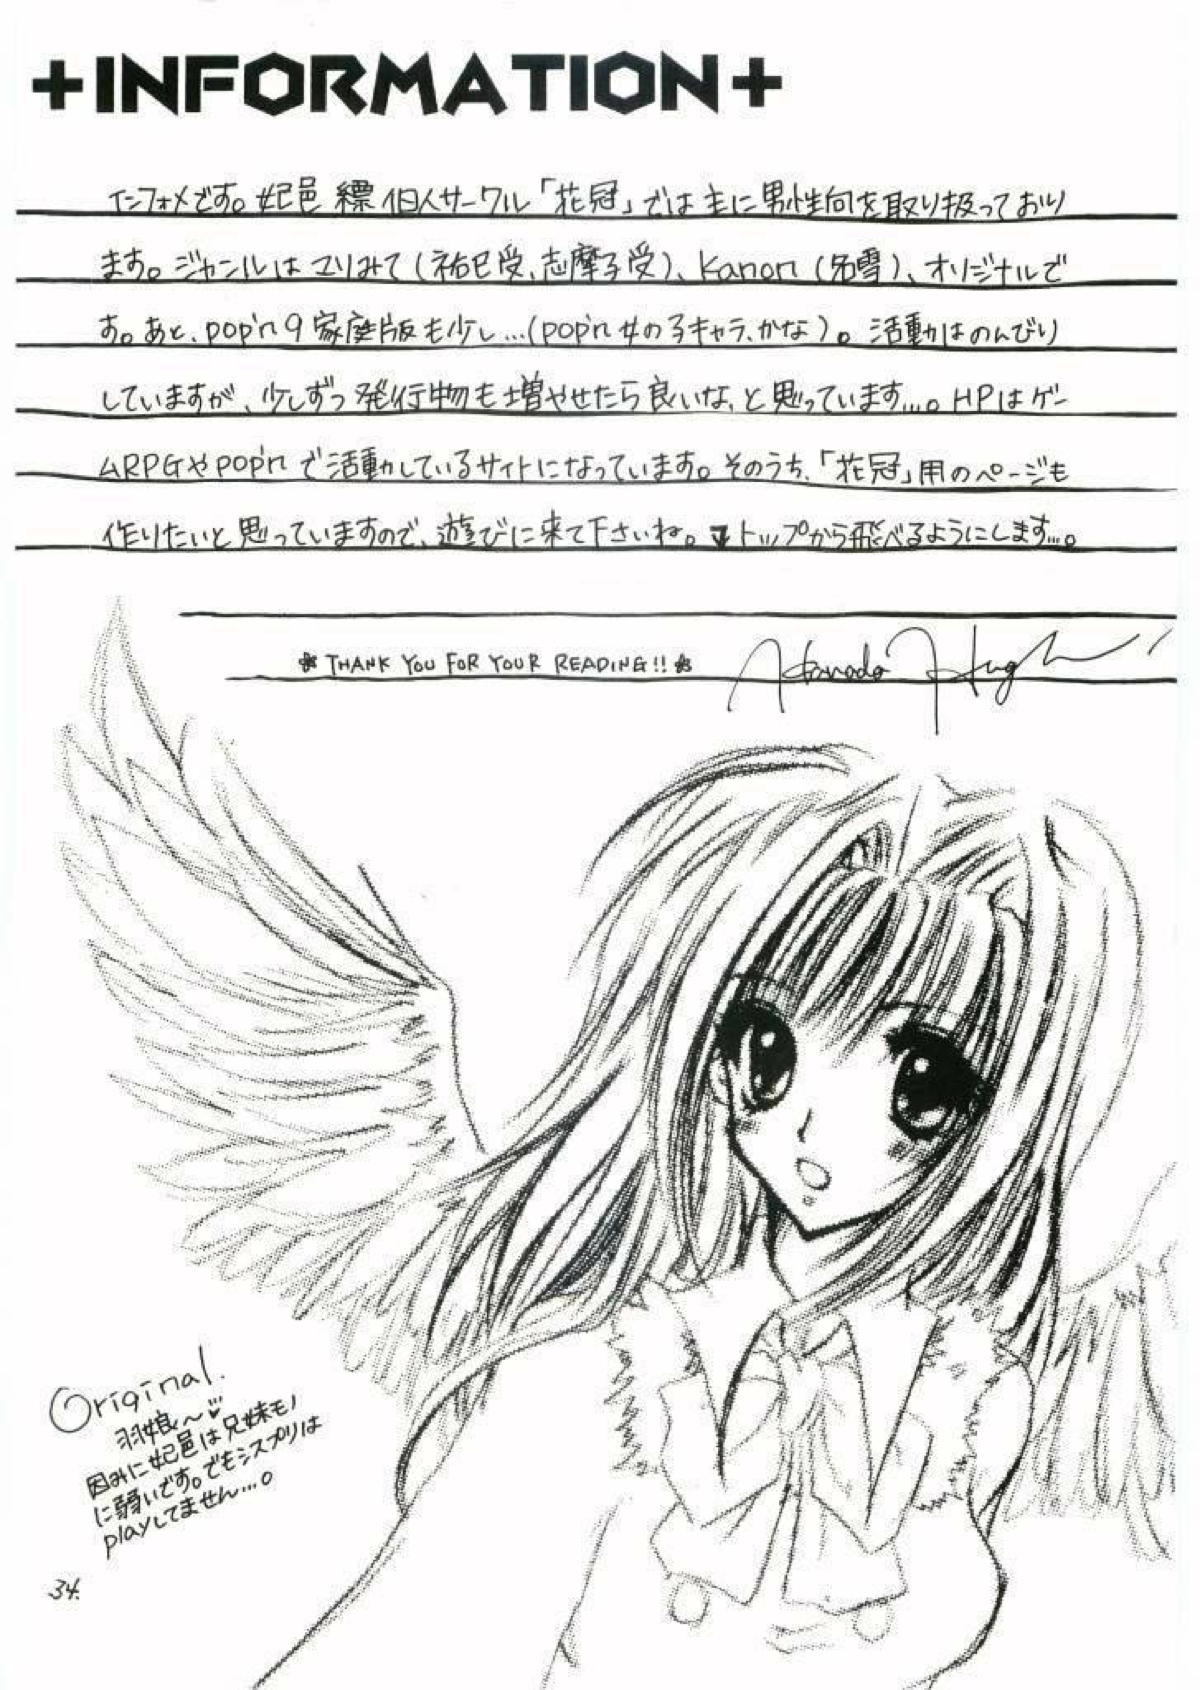 +INFORMATION+
インフォメです。妃邑 縹 個人サークル「花冠」では主に男性向を取り扱っており
ます。ジャンルはマリみて(祐巳受、志摩子受)、Kanon(名雪)、オリジナルで
す。あと、pop'n 9 家庭版も少し…(pop'n 女の子キャラ、かな)。活動はのんびり
していますが、少しずつ発行物も増やせたら良いな、と思っています…。HPはゲー
ムRPGやpop'nで活動しているサイトになっています。そのうち、「花冠」用のページも
作りたいと思っていますので、遊びに来て下さいね。トップから飛べるようにします…。
THANK YOU FOR YOUR READING!!
Original.
羽娘〜♡
因みに妃邑は兄妹モノ
に弱いです。でもシスプリは
playしてません…。
34.